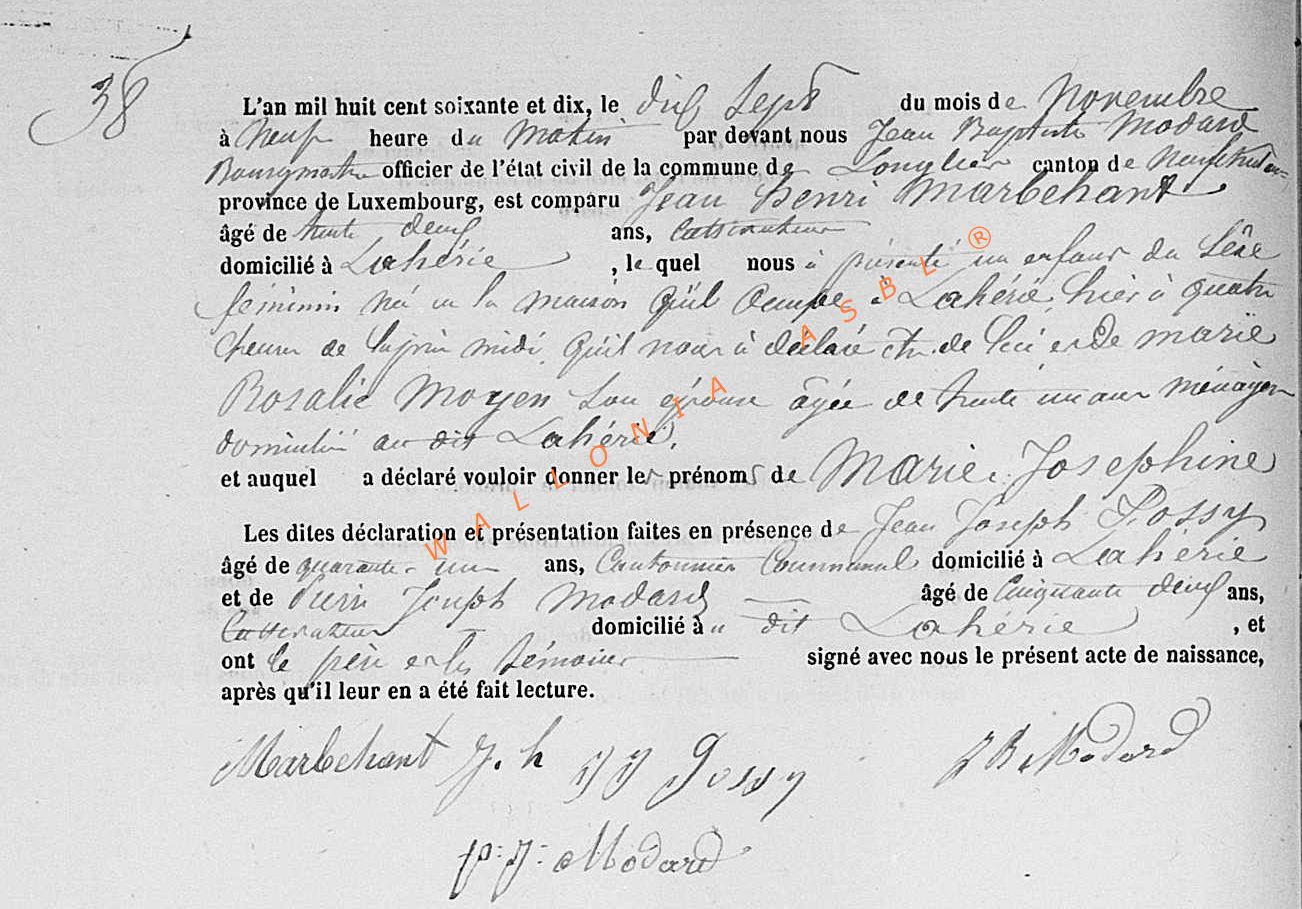 38
L'an mil huit cent soixante et dix, le dix Sept du mois de Novembre
à Neuf heure du Matin par devant nous Jean Baptiste Modard
Bourgmestre officier de l'état civil de la commune de Longlier canton de Neufchateau
province de Luxembourg, est comparu Jean Henri Marbehant
âgé de trente deux ans, Cultivateur
domicilié à Lahérie, le quel nous à présenté un enfant du Sexe
féminin né en la maison qu'il occupe à Lahérie, hier à quatre
heures de l'après midi, qu'il nous à déclaré être de lui et de marie
Rosalie Moyen Son épouse âgée de trente un ans ménagère
domiciliée au dit Lahérie,
et auquel a déclaré vouloir donner les prénoms de Marie, Josephine
Les dites déclaration et présentation faites en présence de Jean Joseph Gossy
âgé de quarante-un ans, Cantonnier Communal domicilié à Lahérie
et de Pierre Joseph Modard âgé de Cinquante deux ans,
Cultivateur domicilié au dit Lahérie, et
ont le père et les témoins signé avec nous le présent acte de naissance,
après qu'il leur en a été fait lecture.
Marbehant J. h JJ Gossy JB Modard
p: J: Modard
WALLONIA ASBL ®